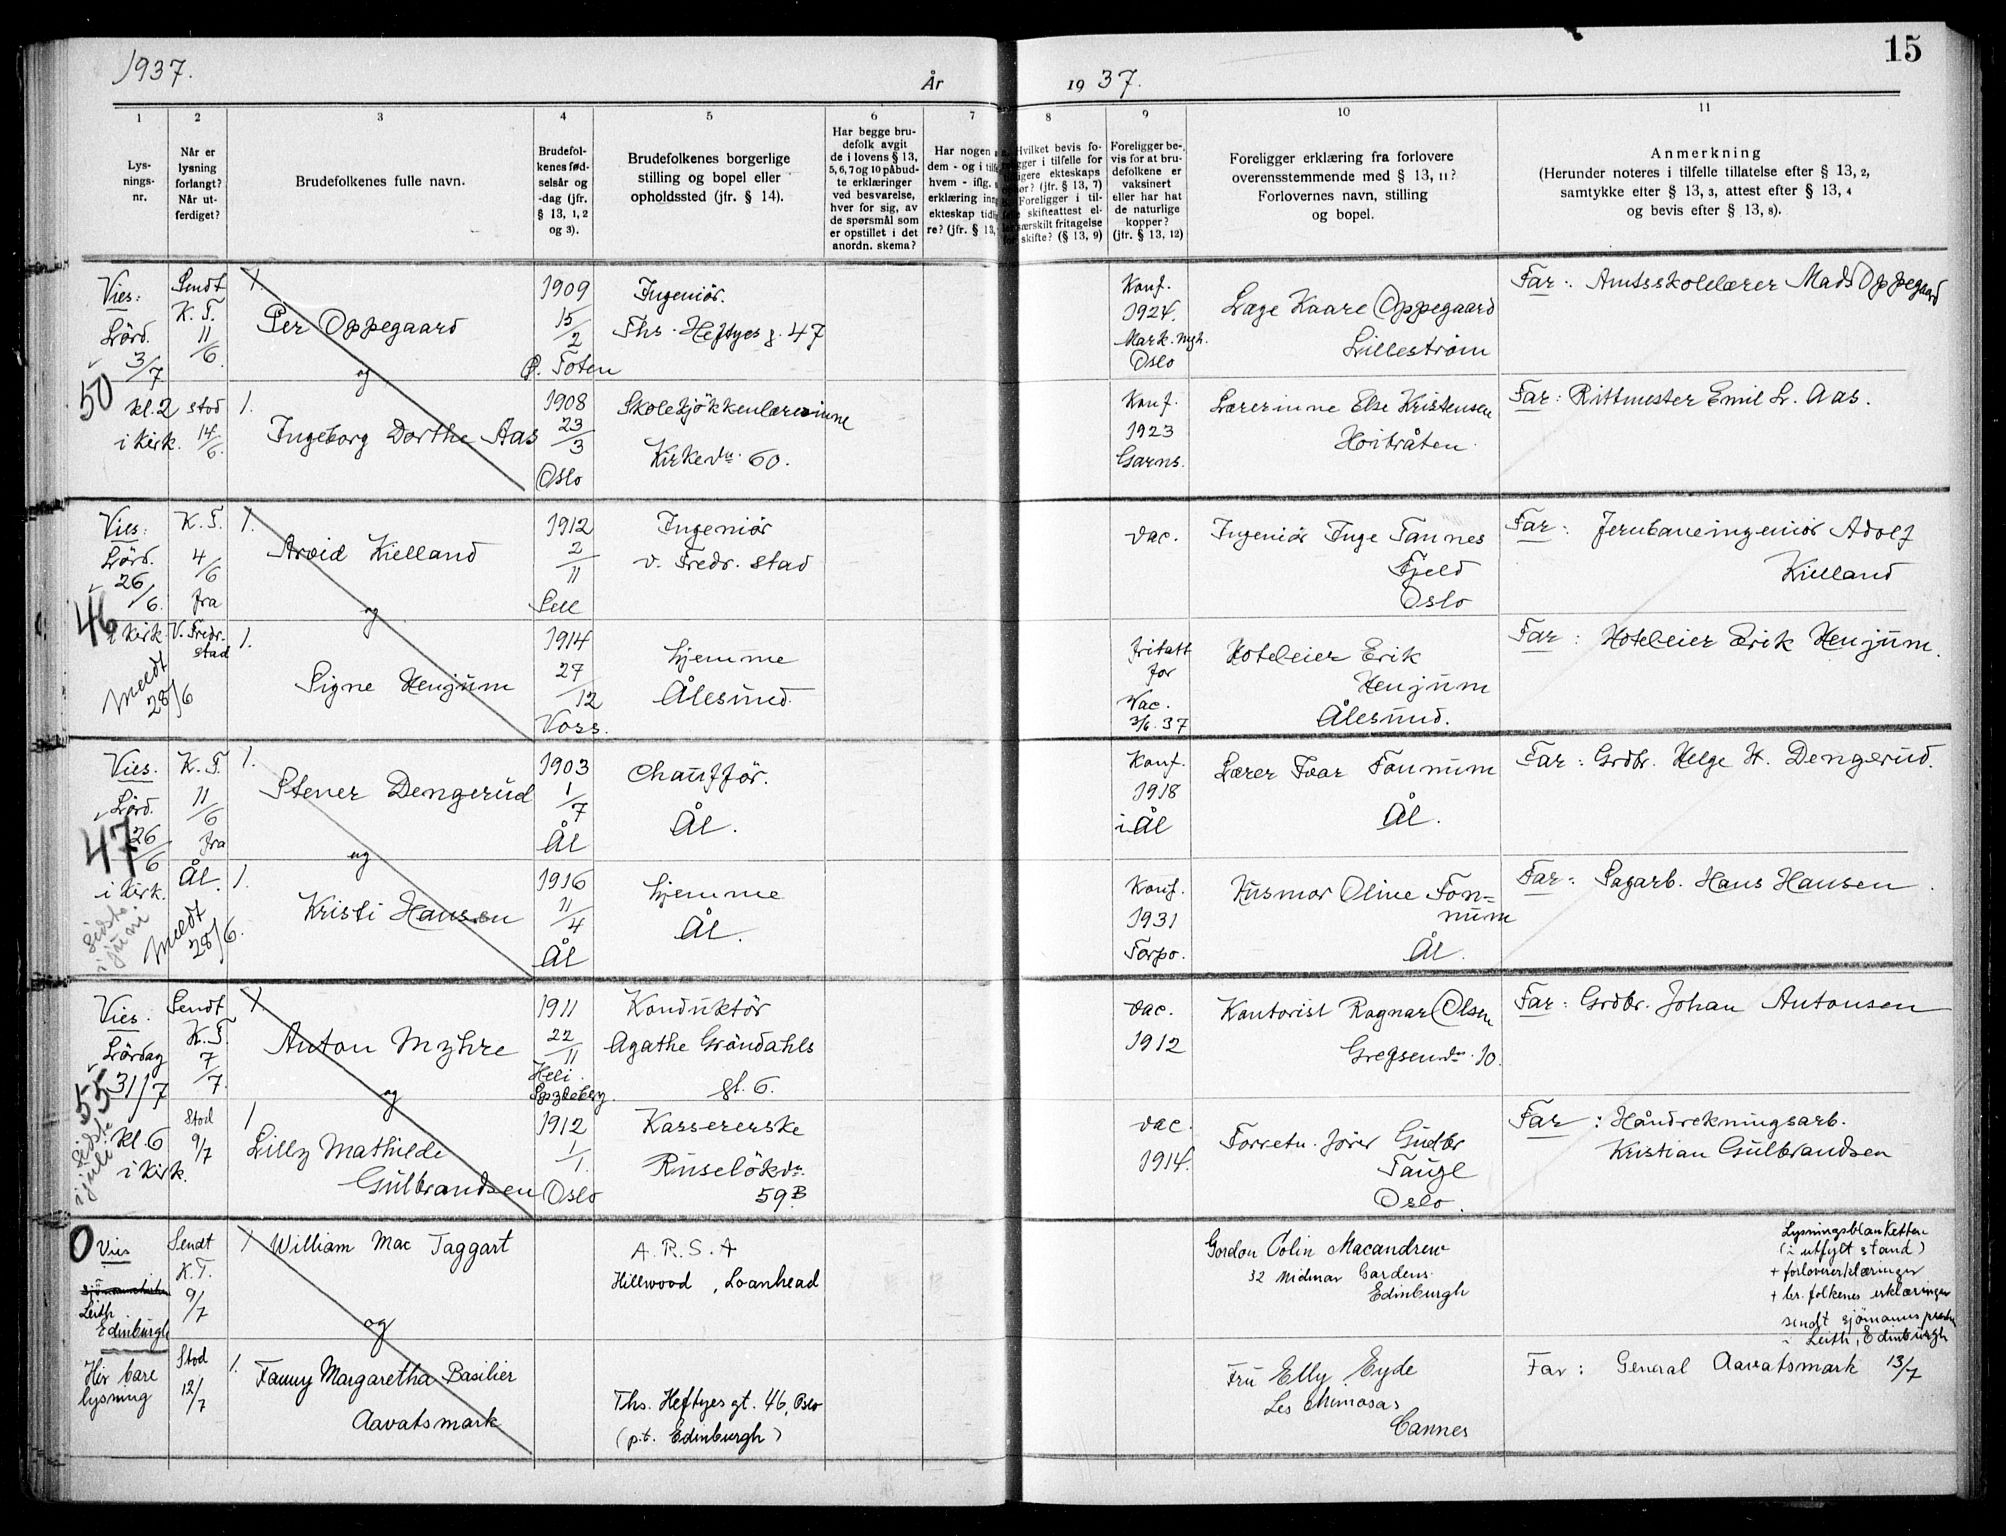 1937.
År
19 37.
15
1
Lys-
nings-
nr.
2
Når er
lysning
forlangt?
Når ut-
ferdiget?
3
Brudefolkenes fulle navn.
4
Brudefol-
kenes fød-
selsår og
-dag (jfr.
§ 13, 1, 2
og 3).
5
Brudefolkenes borgerlige
stilling og bopel eller
opholdssted (jfr. § 14).
6
Har begge bru-
defolk avgit
de i lovens § 13,
5, 6, 7 og 10 påbud-
te erklæringer
ved besvarelse,
hver for sig, av
de spørsmål som
er opstillet i det
anordn. skema?
7
Har nogen a
dem - og i tilf
hvem - iflg.
erklæring inn
ekteskap tidl
re? (jfr. § 13,
8
Hvilket bevis fo-
religger i tilfelle for
tidligere ekteskaps
ophør? (jfr. § 13, 7)
Foreligger i til-
felle skifteattest el-
ler særskilt fritagelse
for skifte? (§ 13, 9)
9
Foreligger be-
vis for at bru-
defolkene er
vaksinert
eller har hat
de naturlige
kopper?
(jfr. § 13, 12)
10
Foreligger erklæring fra forlovere
overensstemmende med § 13, 11?
Forlovernes navn, stilling
og bopel.
11
Anmerkning
(Herunder noteres i tilfelle tillatelse efter § 13, 2,
samtykke efter § 13, 3, attest efter § 13, 4
og bevis efter § 13, 8).
50
Vies:
Lörd.
3/7
kl. 2
i Kirk.
Sendt
K. T.
11/6.
stod
14/6.
1.
Per Oppegaard
og
1909
15/2
Ø. Toten
Ingeniör.
Ths. Heftyes g. 47
Konf.
1924.
Mark. mgh.
Oslo
Lage Kaare Oppegaard
Lilleström
Far: Amtsskolelærer Mads Oppegaard
1.
Ingeborg Dorthe Aas
1908
23/3
Oslo
Skolekjökkenlærerinne
Kirkevn. 60.
Konf.
1923
Garns.
Lærerinne Else Kristensen
Höibråten.
Far: Rittmester Emil L. Aas.
46
Vies:
Lörd.
26/6.
i Kirk.
Meldt
28/6
K. T.
4/6
fra
V. Fredr.
stad
1.
Arvid Kielland
og
1912
2/11
Sell
Ingeniör
v. Fredr. stad
vac.
Ingeniör Inge Tannes
Fjeld
Oslo
Far: Jernbaneingeniör Adolf
Kielland
1.
Signe Henjum
1914
27/12
Voss.
hjemme
Ålesund.
fritatt
for
Vac.
3/6. 37
Hoteleier Erik
Henjum
Ålesund.
Far: Hoteleier Erik Henjum.
47
Vies.
Lörd.
26/6
i Kirk.
Sidste
i juni
K. T.
11/6
fra
Ål.
Meldt
28/6.
1.
Stener Dengerud
og
1903
1/7
Ål
Chaufför.
Ål.
Konf.
1918
i Ål
Lærer Ivar Fonnum
Ål.
Far: Grdbr. Helge H. Dengerud.
1.
Kristi Hansen
1916
11/4
Ål
hjemme
Ål.
Konf.
1931
Torpo.
Husmor Oline Fon=
num
Ål.
Far: Sagarb. Hans Hansen.
55
Vies.
Lördag
31/7
kl. 6
i Kirk.
Sidste
i juli
Sendt
K. T.
7/7.
Stod
9/7
1.
Anton Myhre
og
1911
22/11
Heli.
Spydeberg.
Konduktör
Agathe Gröndahls
gt. 6.
vac.
1912
Kontorist Ragnar Olsen
Gregsenvn. 10.
Far: Grdbr. Johan Antonsen
1
Lilly Mathilde
Gulbrandsen
1912
1/1.
Oslo
Kassererske
Ruselökvn.
59 B.
vac.
1914.
Forretn. förer Gudbr
Tauge
Oslo.
Far: Håndrekningsarb.
Kristian Gulbrandsen
0
Vies
Leith
Edinburgh
Her bare
lysning
Sendt
K. T.
9/7
Stod
12/7
1
William Mac Taggart
og
A. R. S. A
Hillwood, Loanhead
Gordon Colin Macandrew
32 Midmar Gardens.
Edinburgh
Lysningsblanketten
(i utfylt stand)
+ forlovererklæringer
+ br. folkenes erklæringer
sendt sjömannsprest
i Leith, Edinburgh
1.
Fanny Margaretha Basilier
Aavatsmark
Ths. Heftyes gt. 46, Oslo
(p.t. Edinburgh)
Fru Elly Eyde
Les Mimosas
Cannes
Far: General Aavatsmark 13/7